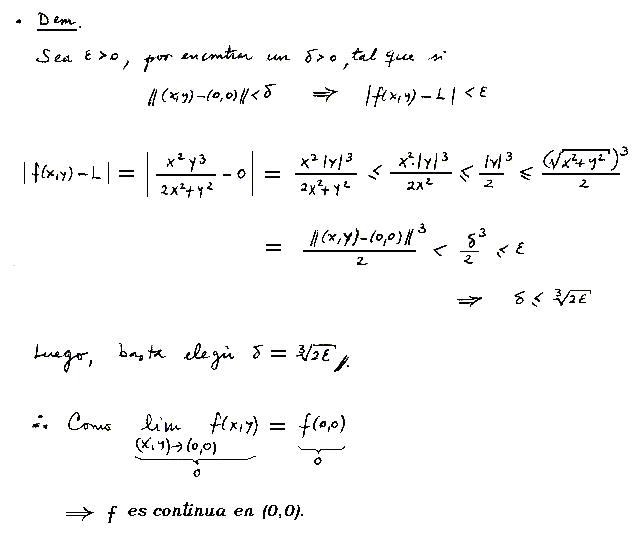 • Dem.
Sea ε>0, por encontrar un δ>0, tal que si
‖(x,y)-(0,0)‖<δ ⟹ |f(x,y)-L|<ε
|f(x,y)-L| = |x²y³/(2x²+y²) - 0| = x²|y|³/(2x²+y²) ≤ x²·|y|³/2x² ≤ |y|³/2 ≤ (√(x²+y²))³/2
= ‖(x,y)-(0,0)‖³/2 < δ³/2 ≤ ε
⟹ δ ≤ ∛2ε
Luego, basta elegir δ = ∛2ε //.
∴ Como lim f(x,y) = f(0,0)
(x,y)→(0,0)
0 0
⟹ f es continua en (0,0).